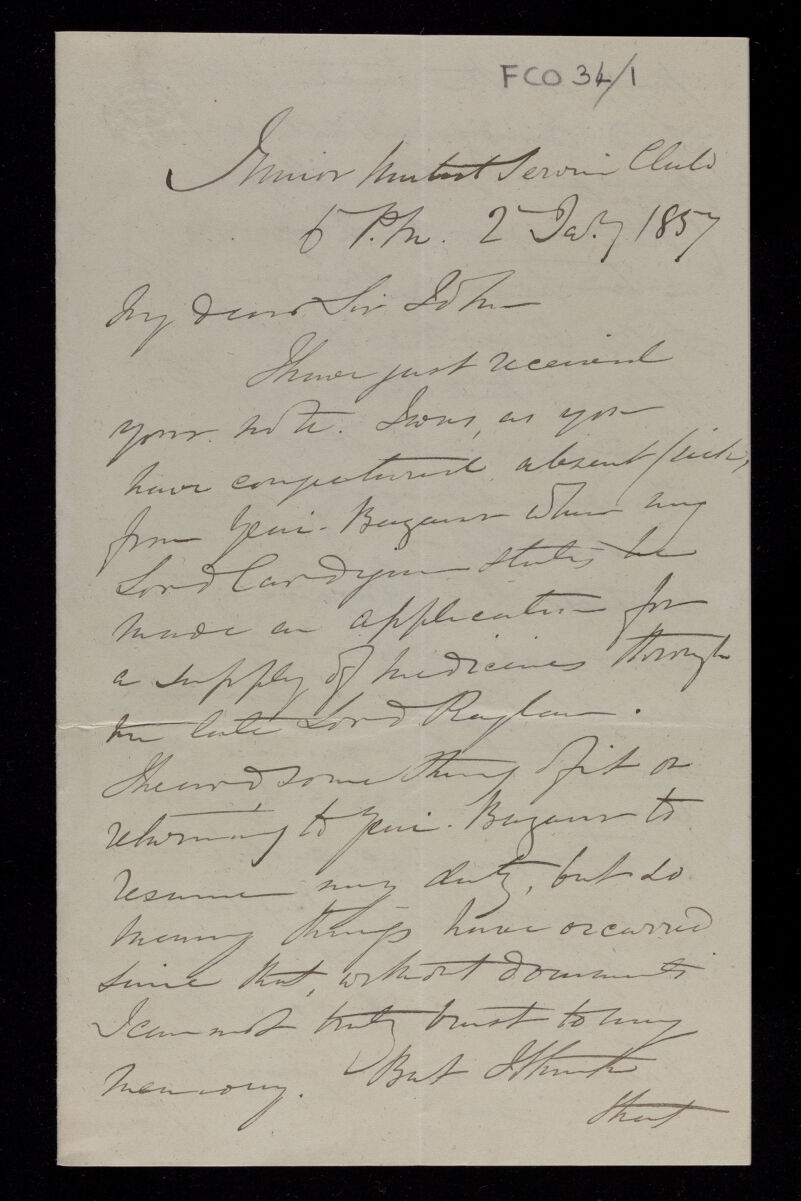 FCO 34/1
Junior United Service Club
6 P.M. 2 Jany 1857
My dear Sir John
I have just received
your note. I was, as you
have conjectured absent sick,
from Yeni-Bazaar when my
Lord Cardigan states he
made an application for
a supply of medicines through
the late Lord Raglan.
I heard something of it on
returning to Yeni-Bazaar to
resume my duty, but so
many things have occurred
since that, without documents
I can not truly trust to my
memory. But I think
that